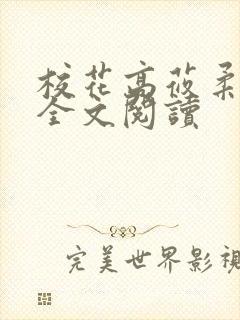 校花高莜柔
全文閱讀
完美世界影視